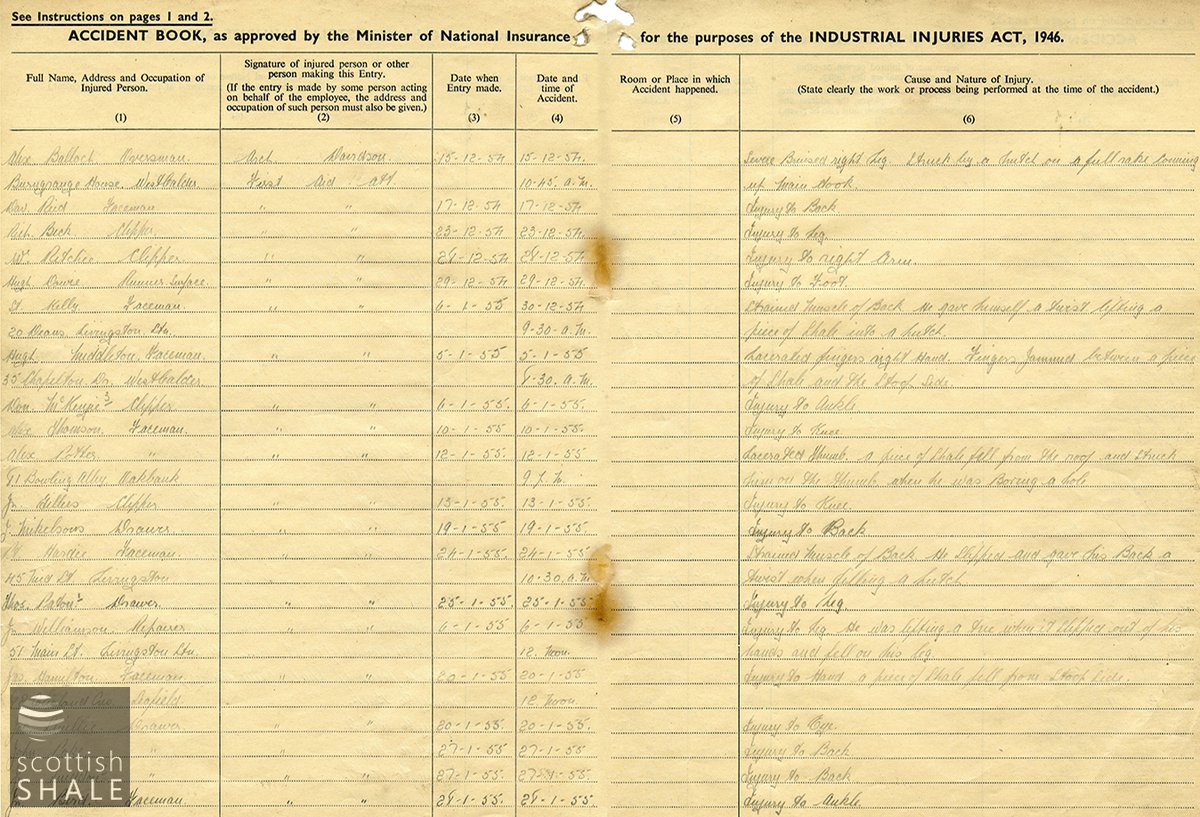 See Instructions on pages 1 and 2.
ACCIDENT BOOK, as approved by the Minister of National Insurance for the purposes of the INDUSTRIAL INJURIES ACT, 1946.
Full Name, Address and Occupation of Injured Person. (1)
Signature of injured person or other person making this Entry. (If the entry is made by some person acting on behalf of the employee, the address and occupation of such person must also be given.) (2)
Date when Entry made. (3)
Date and time of Accident. (4)
Room or Place in which Accident happened. (5)
Cause and Nature of Injury. (State clearly the work or process being performed at the time of the accident.) (6)
Alex Balloch Oversman Arch Davidson 15-12-54 15-12-54 Severe Bruised right Leg. Struck by a hutch on a full rake coming
House. West Calder First Aid att 10-45. a.m. up Main Dook
Reid Faceman " " 17-12-54 17-12-54 Injury to Back
Beck Clipper " " 23-12-54 23-12-54 Injury to Leg.
Wm Ritchie Clipper " " 28-12-54 28-12-54 Injury to right Arm
Hugh Runner Surface " " 29-12-54 29-12-54 Injury to Foot
Kelly Faceman " " 30-12-54 Strained muscle of Back He gave himself a twist lifting a
20 Deans. Livingston Stn. 9-30. a.m. piece of Shale into a hutch
Hugh Middleton Faceman " " 5-1-55 5-1-55 Lacerated fingers right Hand. Fingers Jammed between a piece
35 Chapelton Dr. West Calder 30. a.m. of Shale and the Stoop Side.
McKenzie Clipper " " 6-1-55 6-1-55 Injury to Ankle
Alex Thomson Faceman " " 10-1-55 10-1-55 Injury to Knee
Alex " " " 12-1-55 12-1-55 Lacerated Thumb. a piece of Shale fell from the roof and Struck
91 Bowling Alley Oakbank 9 him on the Thumb when he was Boring a hole
Clipper " " 13-1-55 13-1-55 Injury to Knee
J. Mikelsons Drawer " " 19-1-55 19-1-55 Injury to Back
Hardie Faceman " " 24-1-55 24-1-55 Strained muscle of Back He Slipped and gave his Back a
45 Livingston 10-30. a.m. twist when filling a hutch
Thos. Paton Drawer " " 25-1-55 25-1-55 Injury to Leg
Williamson Repairer " " 6-1-55 6-1-55 Injury to Leg He was lifting a tree when it slipped out of his
51 Main St. Livingston Stn. 12 Noon hands and fell on his leg
Jas Hamilton Faceman " " 20-1-55 20-1-55 Injury to Hand a piece of Shale fell from Stoop Side.
12 Noon
Drawer " " 20-1-55 20-1-55 Injury to Eye
" " 27-1-55 27-1-55 Injury to Back
" " " 27-1-55 27-1-55 Injury to Back
Faceman " " 28-1-55 28-1-55 Injury to Ankle
scottish
SHALE